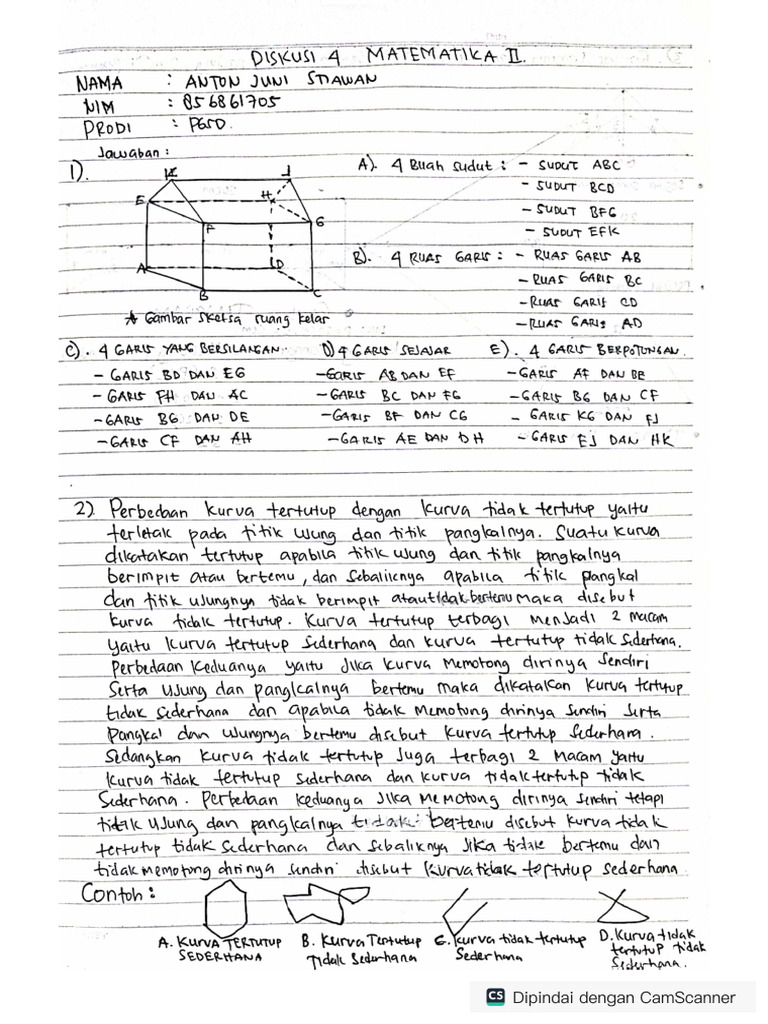 DISKUSI 4 MATEMATIKA II.
NAMA : ANTON JUNI STIAWAN
NIM : 856861705
PRODI : PGSD.
Jawaban :
1).
K J
E H
F G
A D
B C
* Gambar sketsa ruang kelas
A). 4 Buah sudut : - SUDUT ABC
- SUDUT BCD
- SUDUT BFG
- SUDUT EFK
B). 4 RUAS GARIS : - RUAS GARIS AB
- RUAS GARIS BC
- RUAS GARIS CD
- RUAS GARIS AD
C). 4 GARIS YANG BERSILANGAN
- GARIS BD DAN EG
- GARIS FH DAN AC
- GARIS BG DAN DE
- GARIS CF DAN AH
D) 4 GARIS SEJAJAR
- GARIS AB DAN EF
- GARIS BC DAN FG
- GARIS BF DAN CG
- GARIS AE DAN DH
E). 4 GARIS BERPOTONGAN.
- GARIS AF DAN BE
- GARIS BG DAN CF
- GARIS KG DAN FJ
- GARIS EJ DAN HK
2). Perbedaan kurva tertutup dengan kurva tidak tertutup yaitu
terletak pada titik ujung dan titik pangkalnya. Suatu kurva
dikatakan tertutup apabila titik ujung dan titik pangkalnya
berimpit atau bertemu, dan sebaliknya apabila titik pangkal
dan titik ujungnya tidak berimpit atau tidak bertemu maka disebut
kurva tidak tertutup. Kurva tertutup terbagi menjadi 2 macam
yaitu kurva tertutup sederhana dan kurva tertutup tidak sederhana.
Perbedaan keduanya yaitu jika kurva memotong dirinya sendiri
serta ujung dan pangkalnya bertemu maka dikatakan kurva tertutup
tidak sederhana dan apabila tidak memotong dirinya sendiri serta
pangkal dan ujungnya bertemu disebut kurva tertutup sederhana.
Sedangkan kurva tidak tertutup juga terbagi 2 macam yaitu
kurva tidak tertutup sederhana dan kurva tidak tertutup tidak
sederhana. Perbedaan keduanya jika memotong dirinya sendiri tetapi
titik ujung dan pangkalnya tidak bertemu disebut kurva tidak
tertutup tidak sederhana dan sebaliknya jika tidak bertemu dan
tidak memotong dirinya sendiri disebut kurva tidak tertutup sederhana.
Contoh :
A. KURVA TERTUTUP
SEDERHANA
B. Kurva Tertutup
Tidak Sederhana
C. Kurva tidak tertutup
Sederhana
D. Kurva tidak
tertutup tidak
Sederhana.
CS Dipindai dengan CamScanner